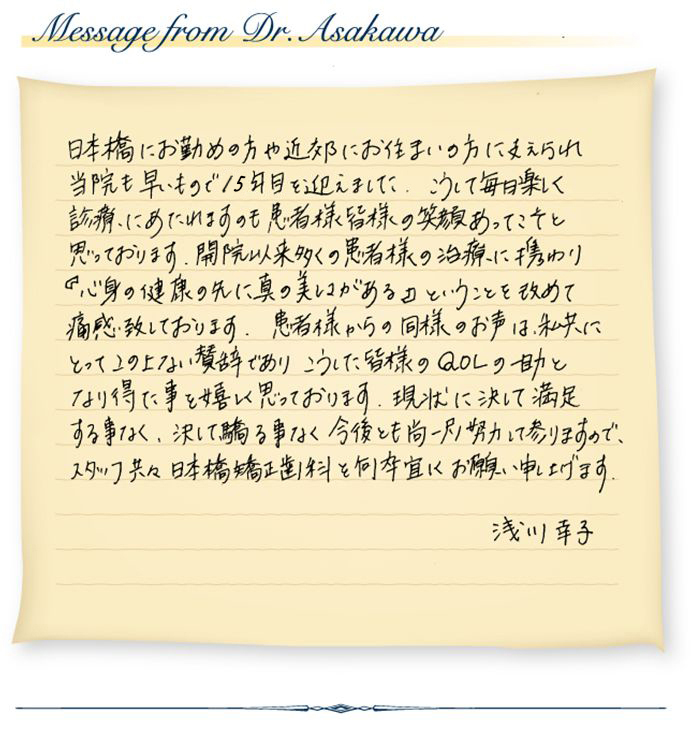 Message from Dr. Asakawa
日本橋にお勤めの方や近郊にお住まいの方に支えられ
当院も早いもので15年目を迎えました. こうして毎日楽しく
診療にあたれますのも患者様皆様の笑顔あってこそと
思っております. 開院以来多くの患者様の治療に携わり
『心身の健康の先に真の美しさがある』ということを改めて
痛感致しております. 患者様からの同様のお声は、私共に
とってこの上ない賛辞であり こうした皆様のQOLの一助と
なり得た事を嬉しく思っております. 現状に決して満足
する事なく、決して驕る事なく 今後とも尚一層努力して参りますので、
スタッフ共々 日本橋矯正歯科を何卒宜しくお願い申し上げます.
浅川 幸子